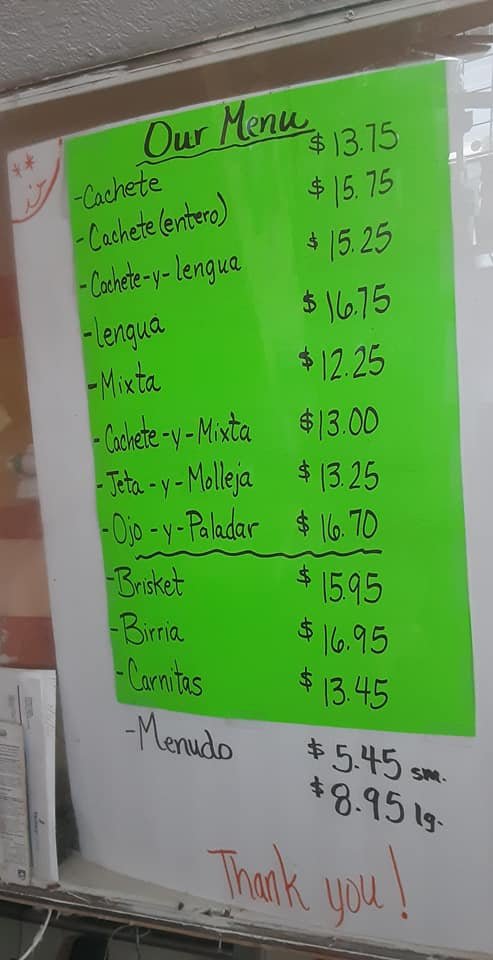 Our Menu
-Cachete $13.75
-Cachete (entero) $15.75
-Cachete-y-lengua $15.25
-lengua $16.75
-Mixta $12.25
-Cachete-y-Mixta $13.00
-Jeta-y-Molleja $13.25
-Ojo-y-Paladar $16.70
-Brisket $15.95
-Birria $16.95
-Carnitas $13.45
-Menudo $5.45 sm.
$8.95 lg.
Thank you!